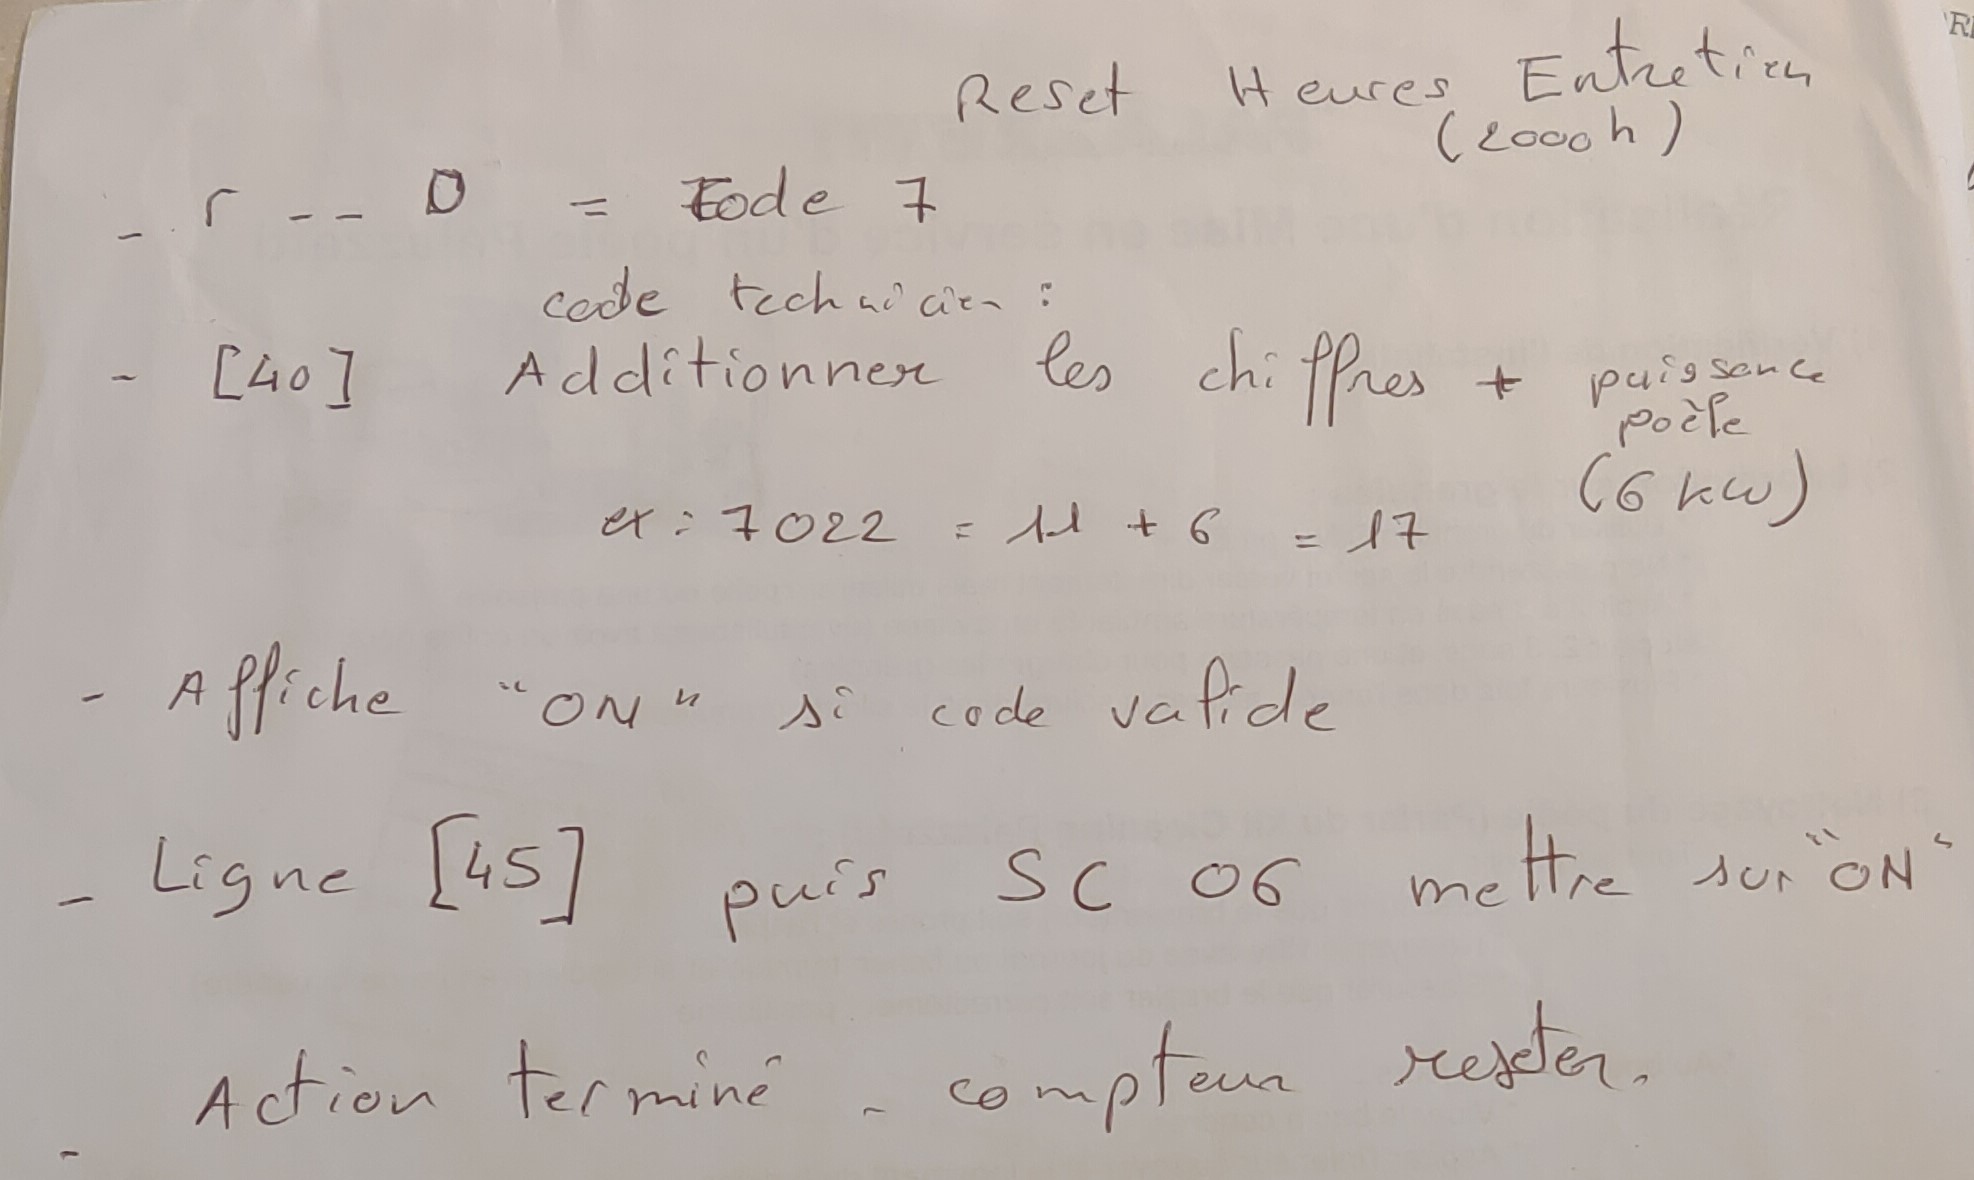 Reset Heures Entretien
(2000h)
- r -- 0 = Code 7
code technicien :
- [40] Additionner les chiffres + puissance
poêle
(6 kw)
ex : 7022 = 11 + 6 = 17
- Affiche "ON" si code valide
- Ligne [45] puis SC 06 mettre sur "ON"
- Action terminé - compteur reseter.